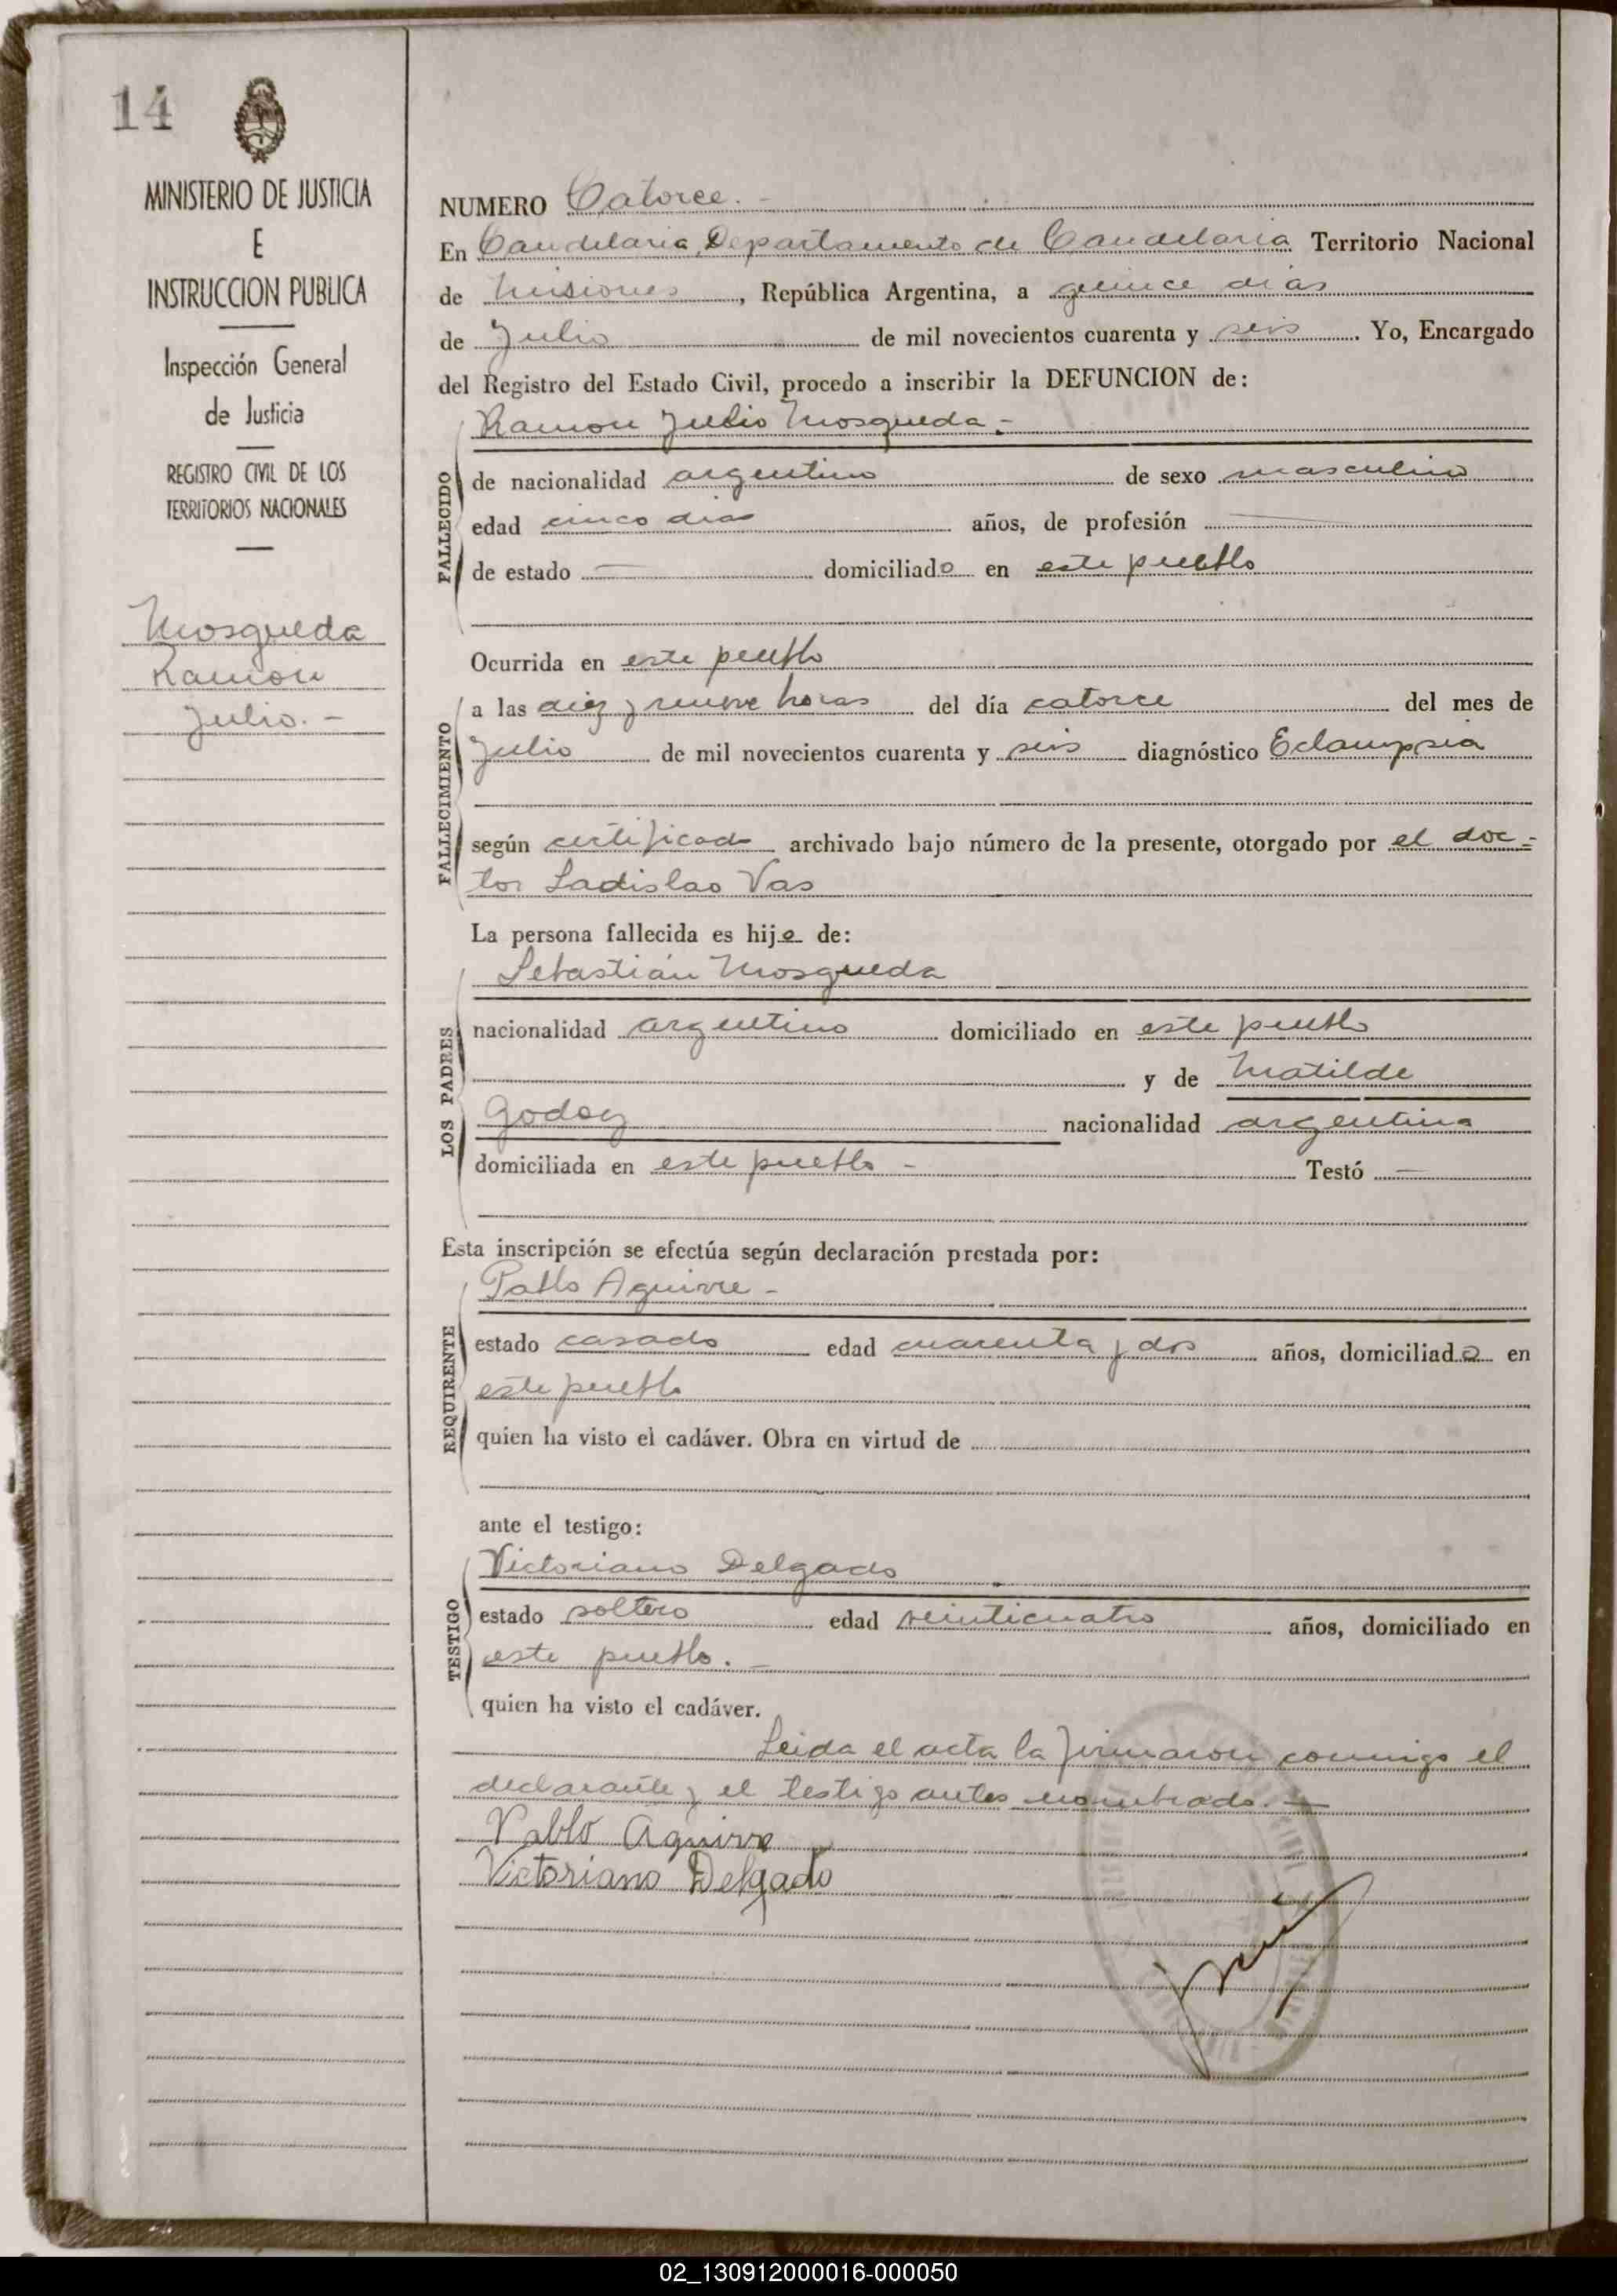 14
MINISTERIO DE JUSTICIA
E
INSTRUCCION PUBLICA
Inspección General
de Justicia
REGISTRO CIVIL DE LOS
TERRITORIOS NACIONALES
Mosqueda
Ramón
Julio. -
NUMERO Catorce. -
En Candelaria, Departamento de Candelaria Territorio Nacional
de Misiones, República Argentina, a quince dias
de Julio de mil novecientos cuarenta y seis. Yo, Encargado
del Registro del Estado Civil, procedo a inscribir la DEFUNCION de:
Ramon Julio Mosqueda. -
FALLECIDO
de nacionalidad argentino de sexo masculino
edad cinco dias años, de profesión —
de estado — domiciliado en este pueblo
Ocurrida en este pueblo
FALLECIMIENTO
a las diez y nueve horas del día catorce del mes de
Julio de mil novecientos cuarenta y seis diagnóstico Eclampsia
según certificado archivado bajo número de la presente, otorgado por el doc=
tor Ladislao Vas
La persona fallecida es hijo de:
Sebastián Mosqueda
LOS PADRES
nacionalidad argentino domiciliado en este pueblo
y de Matilde
Godoy nacionalidad argentina
domiciliada en este pueblo - Testó —
Esta inscripción se efectúa según declaración prestada por:
Pablo Aguirre -
REQUIRENTE
estado casado edad cuarenta y dos años, domiciliado en
este pueblo
quien ha visto el cadáver. Obra en virtud de
ante el testigo:
Victoriano Delgado
TESTIGO
estado soltero edad veinticuatro años, domiciliado en
este pueblo. -
quien ha visto el cadáver.
Leida el acta la firmaron conmigo el
declarante y el testigo antes nombrado. -
Pablo Aguirre
Victoriano Delgado
02_130912000016-000050